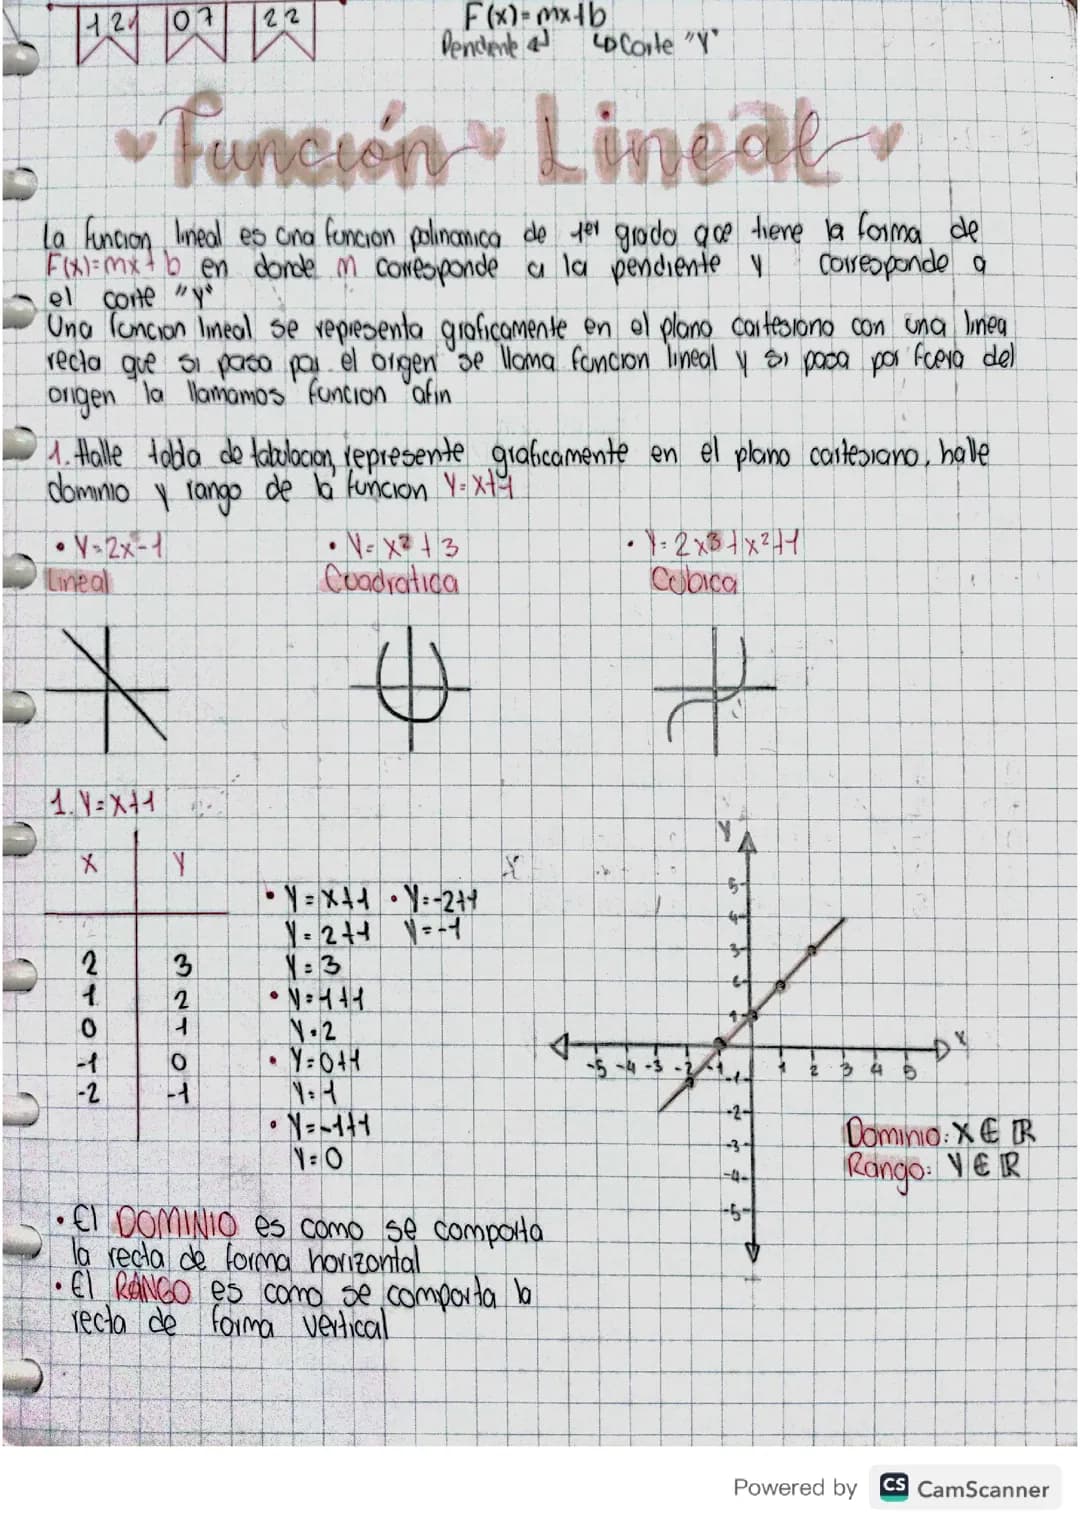 12 07 22
F(x)=mx+b
Pendiente ↲ ↳Corte "Y"
Función Lineal
La funcion lineal es una funcion polinamica de 1er grado que tiene la forma de
F(x)=mx+b en donde m corresponde a la pendiente y corresponde a
el corte "y"
Una funcion lineal se representa graficamente en el plano cartesiano con una linea
recta que si pasa por el origen se llama funcion lineal y si pasa por fuera del
origen la llamamos funcion afin
1. Halle tabla de tabulacion, represente graficamente en el plano cartesiano, halle
dominio y rango de la funcion Y=x+1
• Y=2x-1 • Y=x²+3 • Y=2x³+x²+1
Lineal Cuadratica Cubica
1. Y=x+1
X Y
2 3
1 2
0 1
-1 0
-2 -1
• Y=x+1 • Y=-2+1
Y=2+1 Y=-1
Y=3
• Y=1+1
Y=2
• Y=0+1
Y=1
• Y=-1+1
Y=0
Y
5
4
3
2
1
X
-5 -4 -3 -2 -1 1 2 3 4 5
-1
-2
-3
-4
-5
Dominio: X ∈ ℝ
Rango: Y ∈ ℝ
• El DOMINIO es como se comporta
la recta de forma horizontal
• El RANGO es como se comporta la
recta de forma vertical
Powered by CS CamScanner